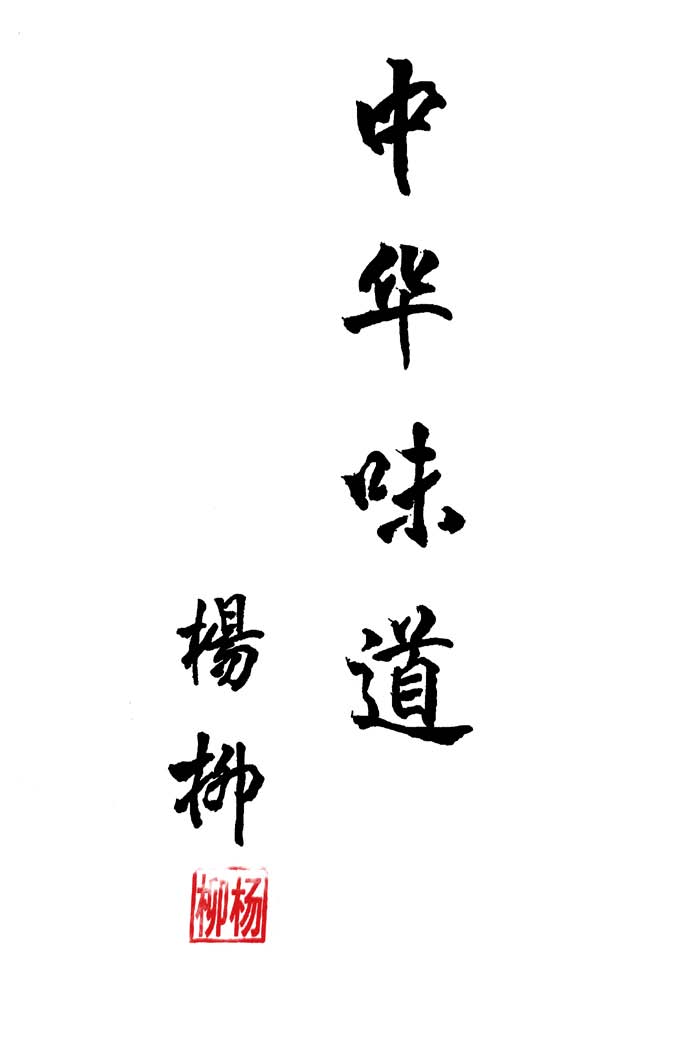 中华味道
楊柳
杨柳